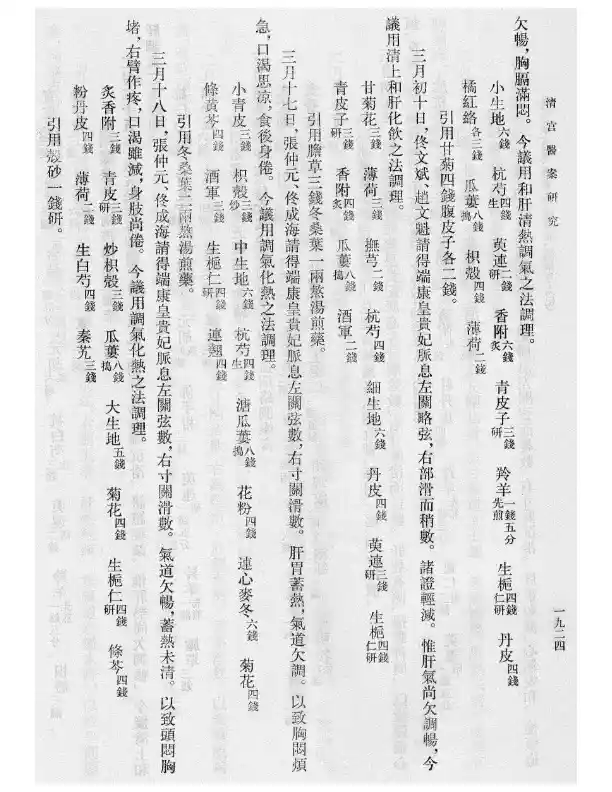 清宮醫案研究
一九二四
欠暢，胸膈滿悶。今議用和肝清熱調氣之法調理。
小生地六錢　杭芍四錢生　萸連二錢研　香附六錢炙　青皮子三錢研　羚羊一錢五分先煎　生梔仁四錢研　丹皮四錢
橘紅絡各三錢　瓜蔞八錢搗　枳殼四錢　薄荷二錢
引用甘菊四錢腹皮子各二錢。
三月初十日，佟文斌、趙文魁請得端康皇貴妃脈息左關略弦，右部滑而稍數。諸證輕減。惟肝氣尚欠調暢，今
議用清上和肝化飲之法調理。
甘菊花三錢　薄荷三錢　撫芎二錢　杭芍四錢　細生地六錢　丹皮四錢　萸連三錢研　生梔仁四錢研
青皮子三錢研　香附四錢炙　瓜蔞八錢搗　酒軍二錢
引用膽草三錢冬桑葉一兩熬湯煎藥。
三月十七日，張仲元、佟成海請得端康皇貴妃脈息左關弦數，右寸關滑數。肝胃蓄熱，氣道欠調。以致胸悶煩
急，口渴思涼，食後身倦。今議用調氣化熱之法調理。
小青皮三錢　枳殼三錢炒　中生地六錢　杭芍四錢生　溏瓜蔞八錢搗　花粉四錢　連心麥冬六錢　菊花四錢
條黃芩四錢　酒軍三錢　生梔仁四錢研　連翹四錢
引用冬桑葉二兩熬湯煎藥。
三月十八日，張仲元、佟成海請得端康皇貴妃脈息左關弦數，右寸關滑數。氣道欠暢，蓄熱未清。以致頭悶胸
堵，右臂作疼，口渴雖減，身肢尚倦。今議用調氣化熱之法調理。
炙香附三錢　青皮三錢研　炒枳殼三錢　瓜蔞八錢搗　大生地五錢　菊花四錢　生梔仁四錢研　條芩四錢
粉丹皮四錢　薄荷二錢　生白芍四錢　秦艽三錢
引用殼砂一錢研。